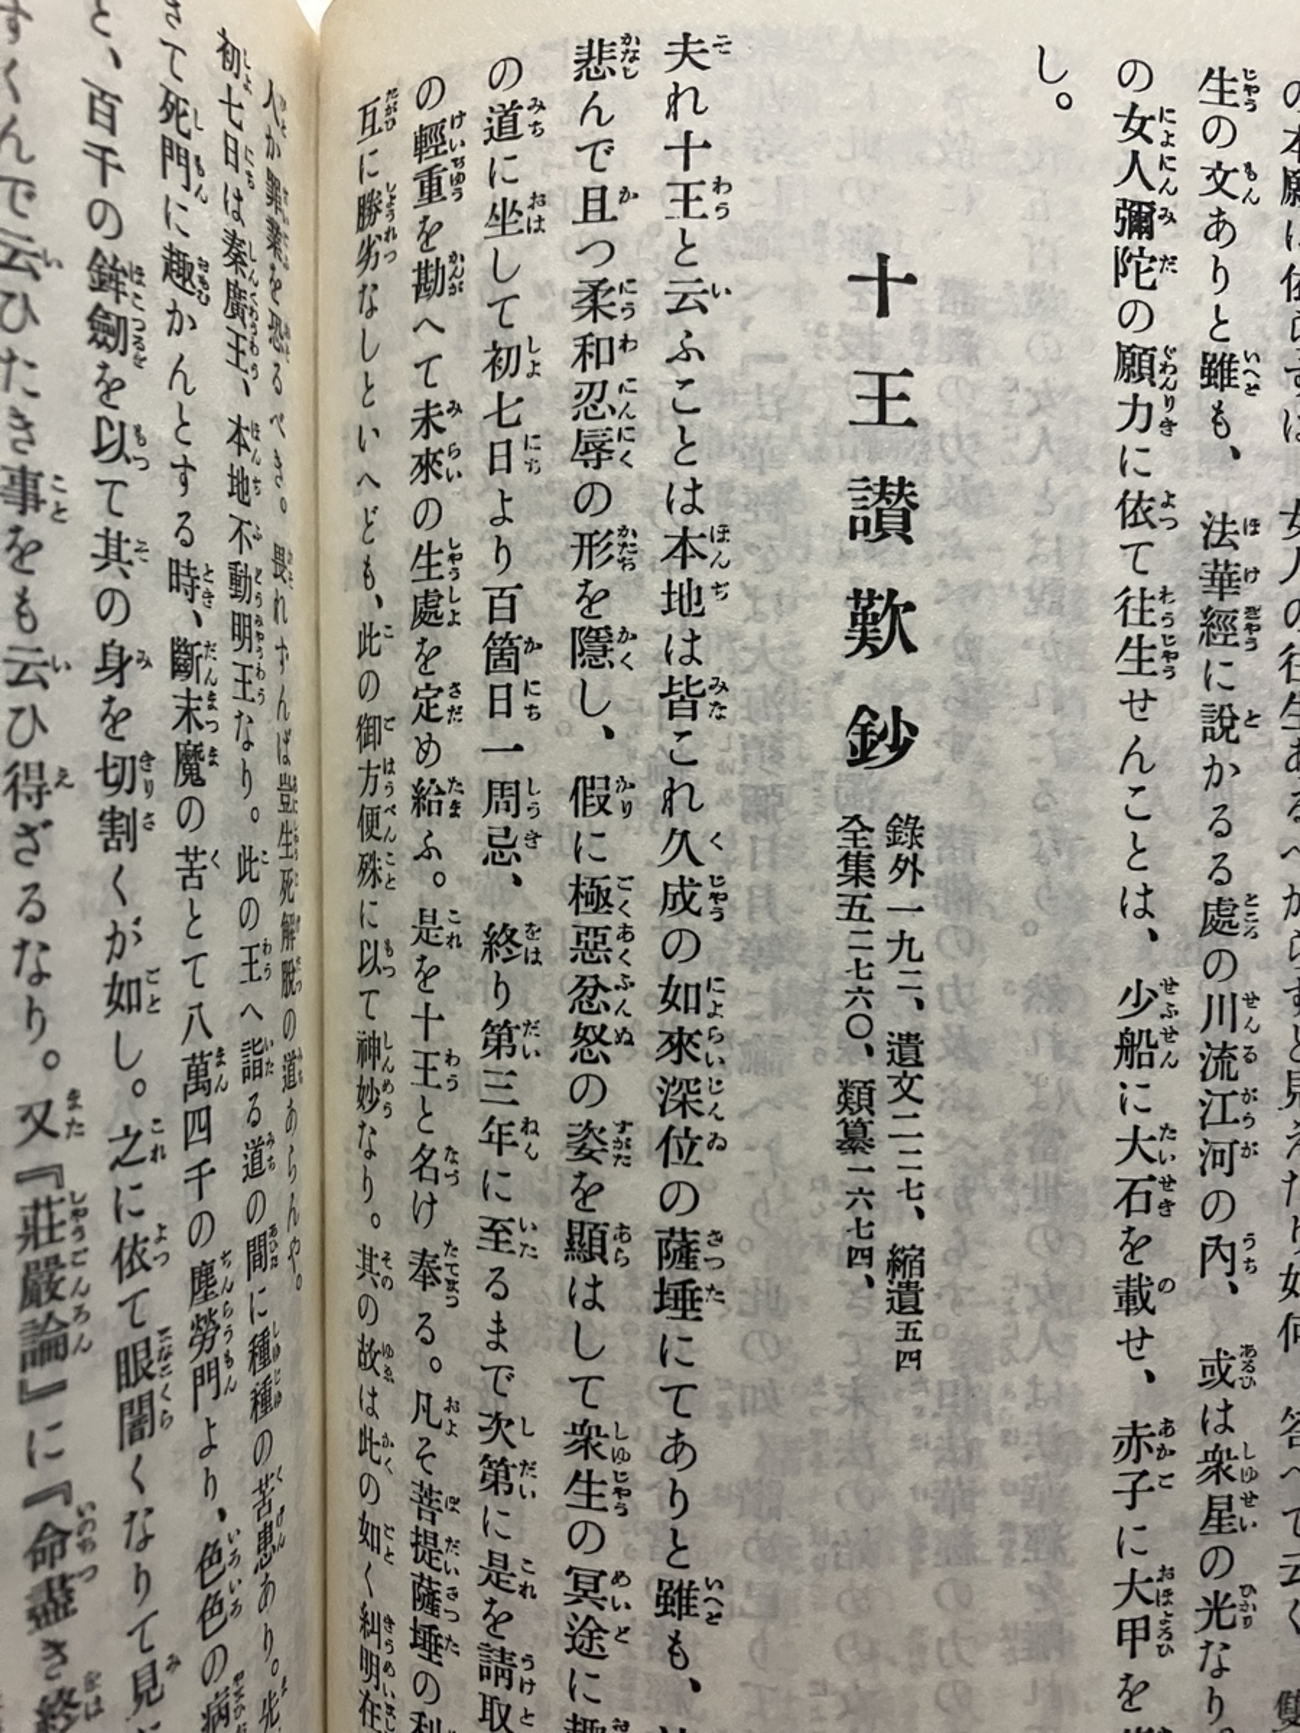 の本願に依らずば、女人の往生あるべからずと見えたり如何。答へて云く、
生の文ありと雖も、法華經に說かるる處の川流江河の內、或は衆星の光なり。
の女人彌陀の願力に依て往生せんことは、少船に大石を載せ、赤子に大甲を
し。
十王讃歎鈔
錄外一九ノ二、遺文二ノ二七、縮遺五四
全集五ノ二七六〇、類纂一六七四、
夫れ十王と云ふことは本地は皆これ久成の如來深位の薩埵にてありと雖も、
悲んで且つ柔和忍辱の形を隱し、假に極惡忿怒の姿を顯はして衆生の冥途に趣
の道に坐して初七日より百箇日一周忌、終り第三年に至るまで次第に是を請取
の輕重を勘へて未來の生處を定め給ふ。是を十王と名け奉る。凡そ菩提薩埵の利
互に勝劣なしといへども、此の御方便殊に以て神妙なり。其の故は此の如く糾明在
人か罪業を恐るべき。畏れずんば豈生死解脫の道あらんや。
初七日は秦廣王、本地不動明王なり。此の王へ詣る道の間に種種の苦患あり。先
さて死門に趣かんとする時、斷末魔の苦とて八萬四千の塵勞門より、色色の病
と、百千の鉾劒を以て其の身を切割くが如し。之に依て眼闇くなりて見
すくんで云ひたき事をも云ひ得ざるなり。又『莊嚴論』に『命盡き終